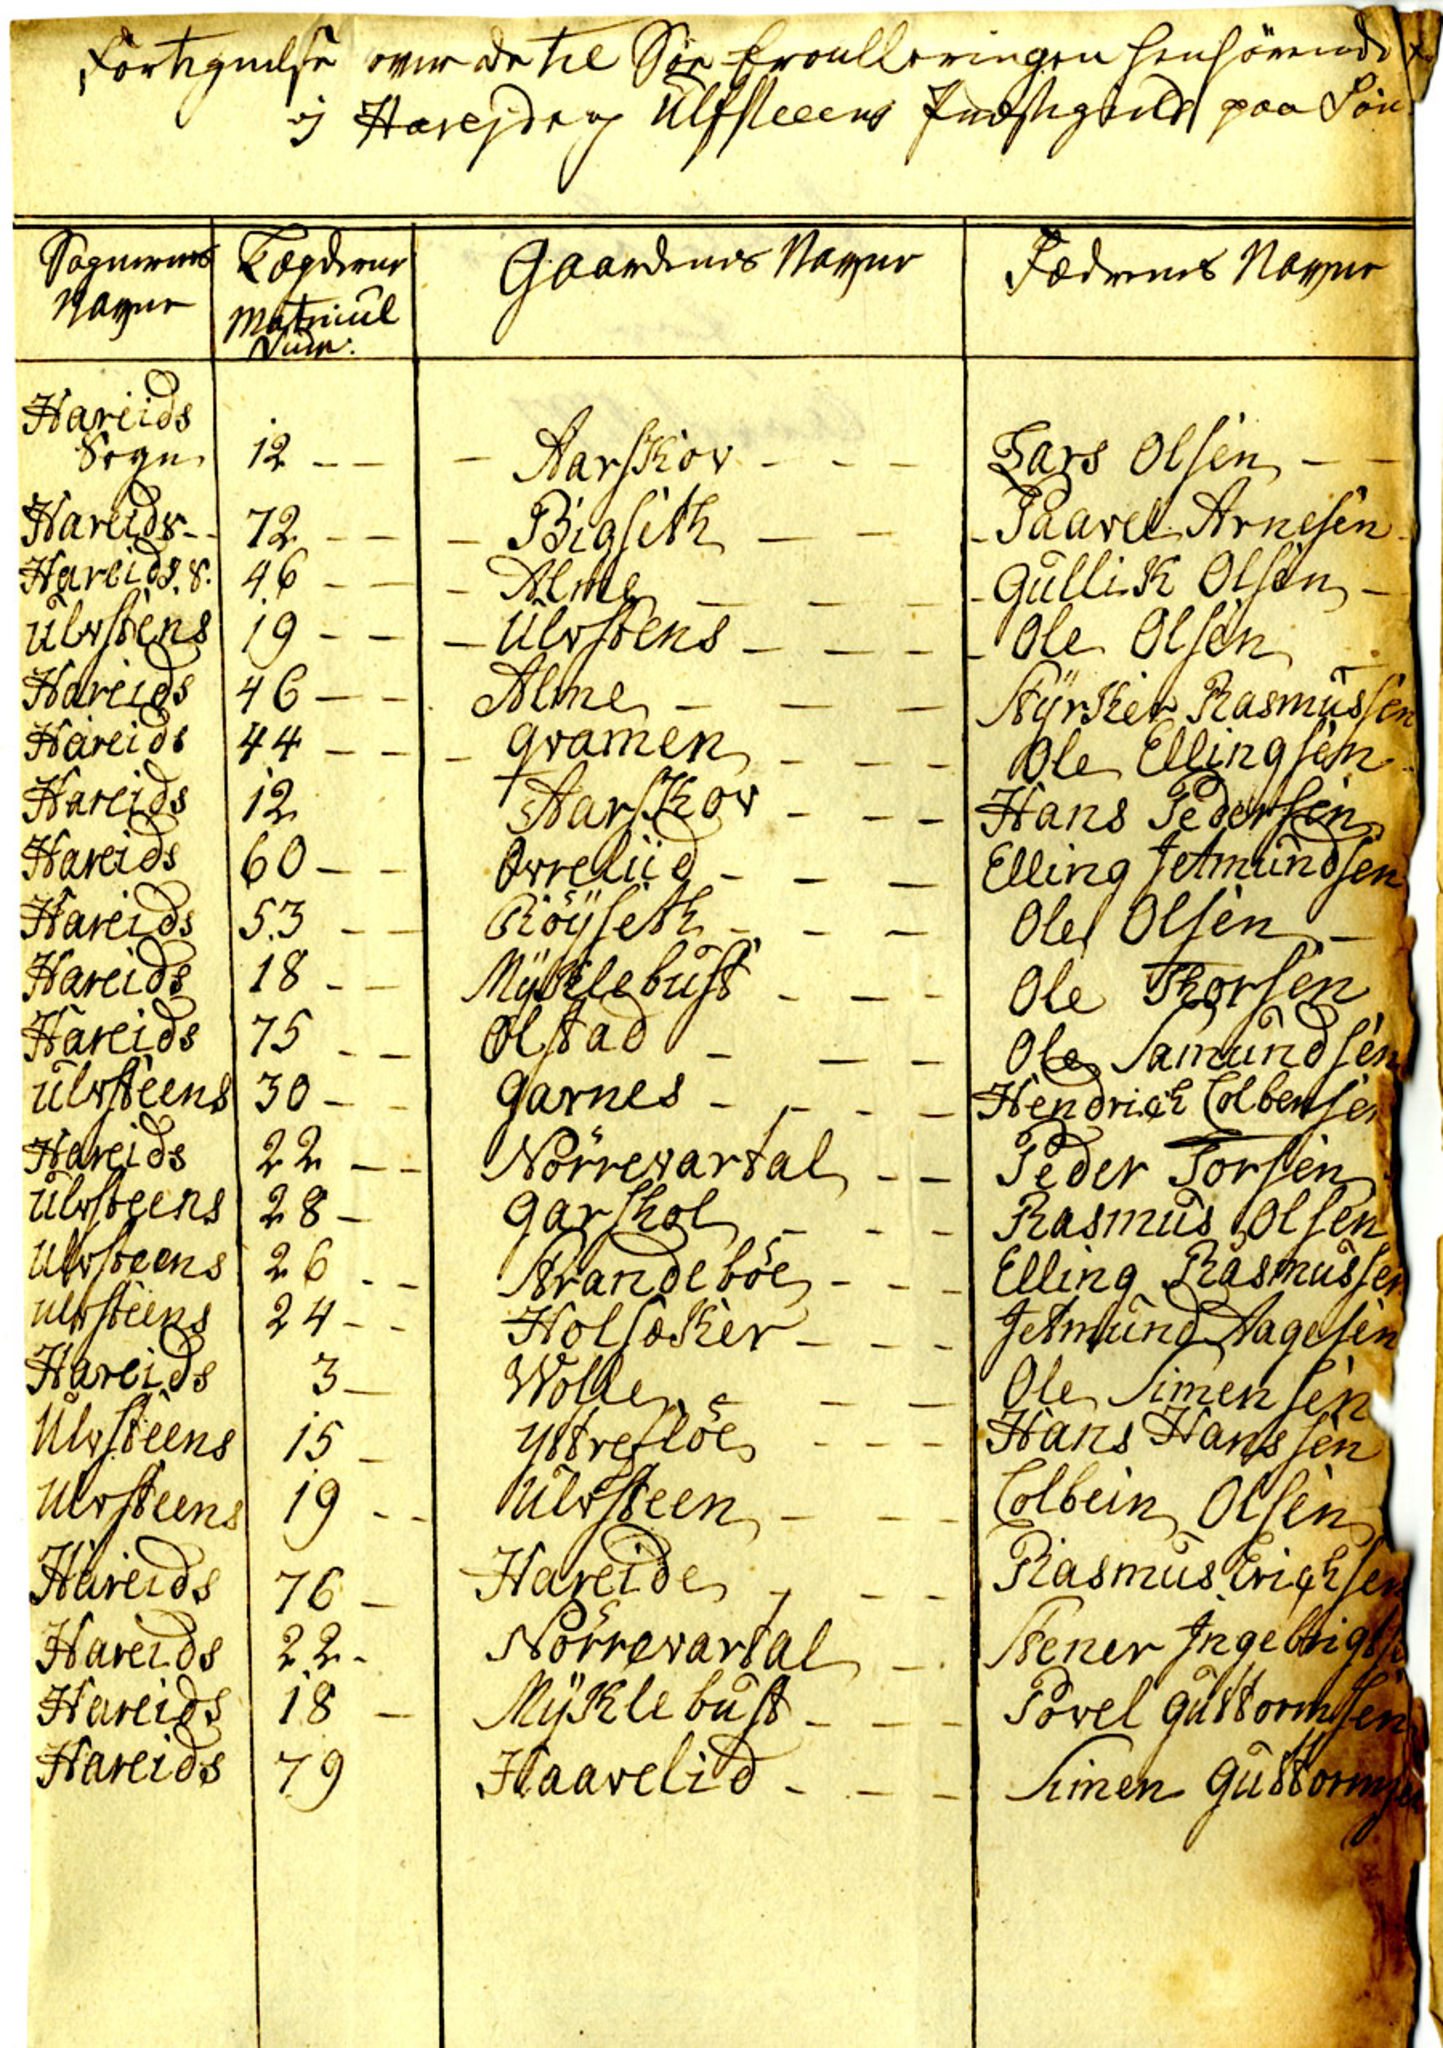 Fortegnelse over de til Søe Enroulleringen henhørende
i Harejds og Ulfsteens Præstegield paa Søn
Sognernes Navne | Lægdernes Matricul Num: | Gaardenes Navne | Fædrenes Navne
Hareids
Sogn 12 - - - Aarskov - - - Lars Olsen - -
Hareids - - 72 - - - Bigseth - - - Paavel Arnesen
Hareids. S. 46 - - - Alme - - - - Gullik Olsen -
Ulvsteens 19 - - - Ulvstens - - - - Ole Olsen
Hareids 46 - - Alme - - - Styrker Rasmussen
Hareids 44 - - - Qvamen - - - Ole Ellingsen
Hareids 12 Aarskov - - - Hans Pedersen
Hareids 60 - - Ovreliid - - - Elling Jetmundsen
Hareids 53 - - Röyseth - - - Ole Olsen -
Hareids 18 - - Myklebust - - - Ole Thorsen
Hareids 75 - - Olstad - - - Ole Samundsen
Ulvsteens 30 - - Garnes - - - - Hendrich Colbensen
Hareids 22 - - Nörrevartal - - Peder Torsen
Ulvsteens 28 - Garshol - - - Rasmus Olsen
Ulvsteens 26 - - Strandeböe - - - Elling Rasmussen
Ulvsteens 24 - - Holsæker - - - Jetmund Aagesen
Hareids 3 - Wolle - - - Ole Simensen
Ulvsteens 15 - Yttreflöe - - - Hans Hanssen
Ulvsteens 19 - - Ulvsteen - - - Colbein Olsen
Hareids 76 - Hareide - - - Rasmus Erichsen
Hareids 22 - Nörrevartal - Stener Ingebrigtse
Hareids 18 - Myklebust - - - Povel Guttormsen
Hareids 79 Haavelid - - - Simen Guttormsen